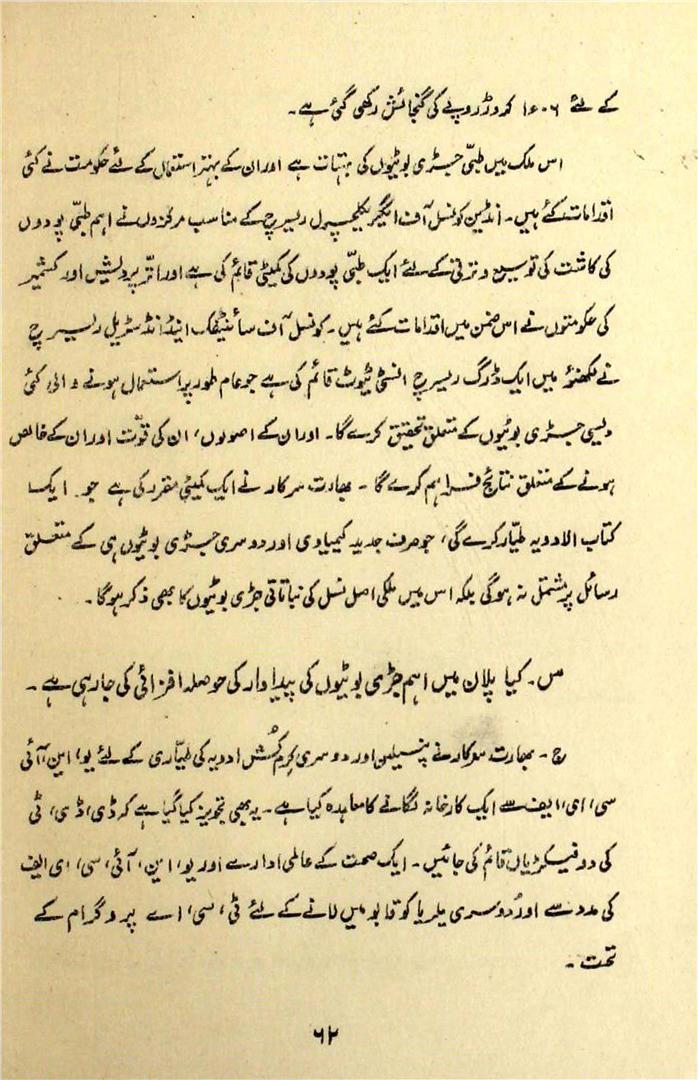 کے لئے ۱۶۰۶ کروڑ روپے کی گنجائش رکھی گئی ہے۔
اس ملک میں طبّی جڑی بوٹیوں کی بہتات ہے اور ان کے بہتر استعمال کے لئے حکومت نے کئی
اقدامات کئے ہیں۔ انڈین کونسل آف ایگریکلچرل ریسرچ کے مناسب مرکزوں نے اہم طبّی پودوں
کی کاشت کی توسیع و ترقی کے لئے ایک طبّی پودوں کی کمیٹی قائم کی ہے اور اتّر پردیش اور کشمیر
کی حکومتوں نے اس ضمن میں اقدامات کئے ہیں۔ کونسل آف سائنٹیفک اینڈ انڈسٹریل ریسرچ
نے لکھنؤ میں ایک ڈرگ ریسرچ انسٹی ٹیوٹ قائم کی ہے جو عام طور پر استعمال ہونے والی کئی
دیسی جڑی بوٹیوں کے متعلق تحقیق کرے گا۔ اور ان کے اصولوں، ان کی قوّت اور ان کے خالص
ہونے کے متعلق نتائج فراہم کرے گا۔ بھارت سرکار نے ایک کمیٹی مقرر کی ہے جو ایک
کتاب الادویہ طیّار کرے گی، جو صرف جدید کیمیاوی اور دوسری جڑی بوٹیوں ہی کے متعلق
رسائل پر مشتمل نہ ہوگی بلکہ اس میں ملکی اصل نسل کی نباتاتی جڑی بوٹیوں کا بھی ذکر ہوگا۔
س۔ کیا پلان میں اہم جڑی بوٹیوں کی پیداوار کی حوصلہ افزائی کی جا رہی ہے۔
ج۔ بھارت سرکار نے پنسیلین اور دوسری کرم کُش ادویہ کی طیّاری کے لئے یو، این، آئی
سی، ای، ایف سے ایک کارخانہ لگانے کا معاہدہ کیا ہے۔ یہ بھی تجویز کیا گیا ہے کہ ڈی، ڈی، ٹی
کی دو فیکٹریاں قائم کی جائیں۔ ایک صحت کے عالمی ادارے اور یو، این، آئی، سی، ای ایف
کی مدد سے اور دُوسری ملیریا کو قابو میں لانے کے لئے ٹی، سی، اے پروگرام کے
تحت۔
۶۲